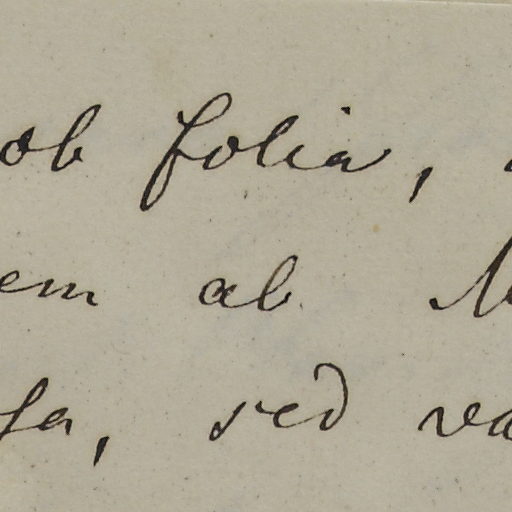 ob folia,
em ab
fa, sed va